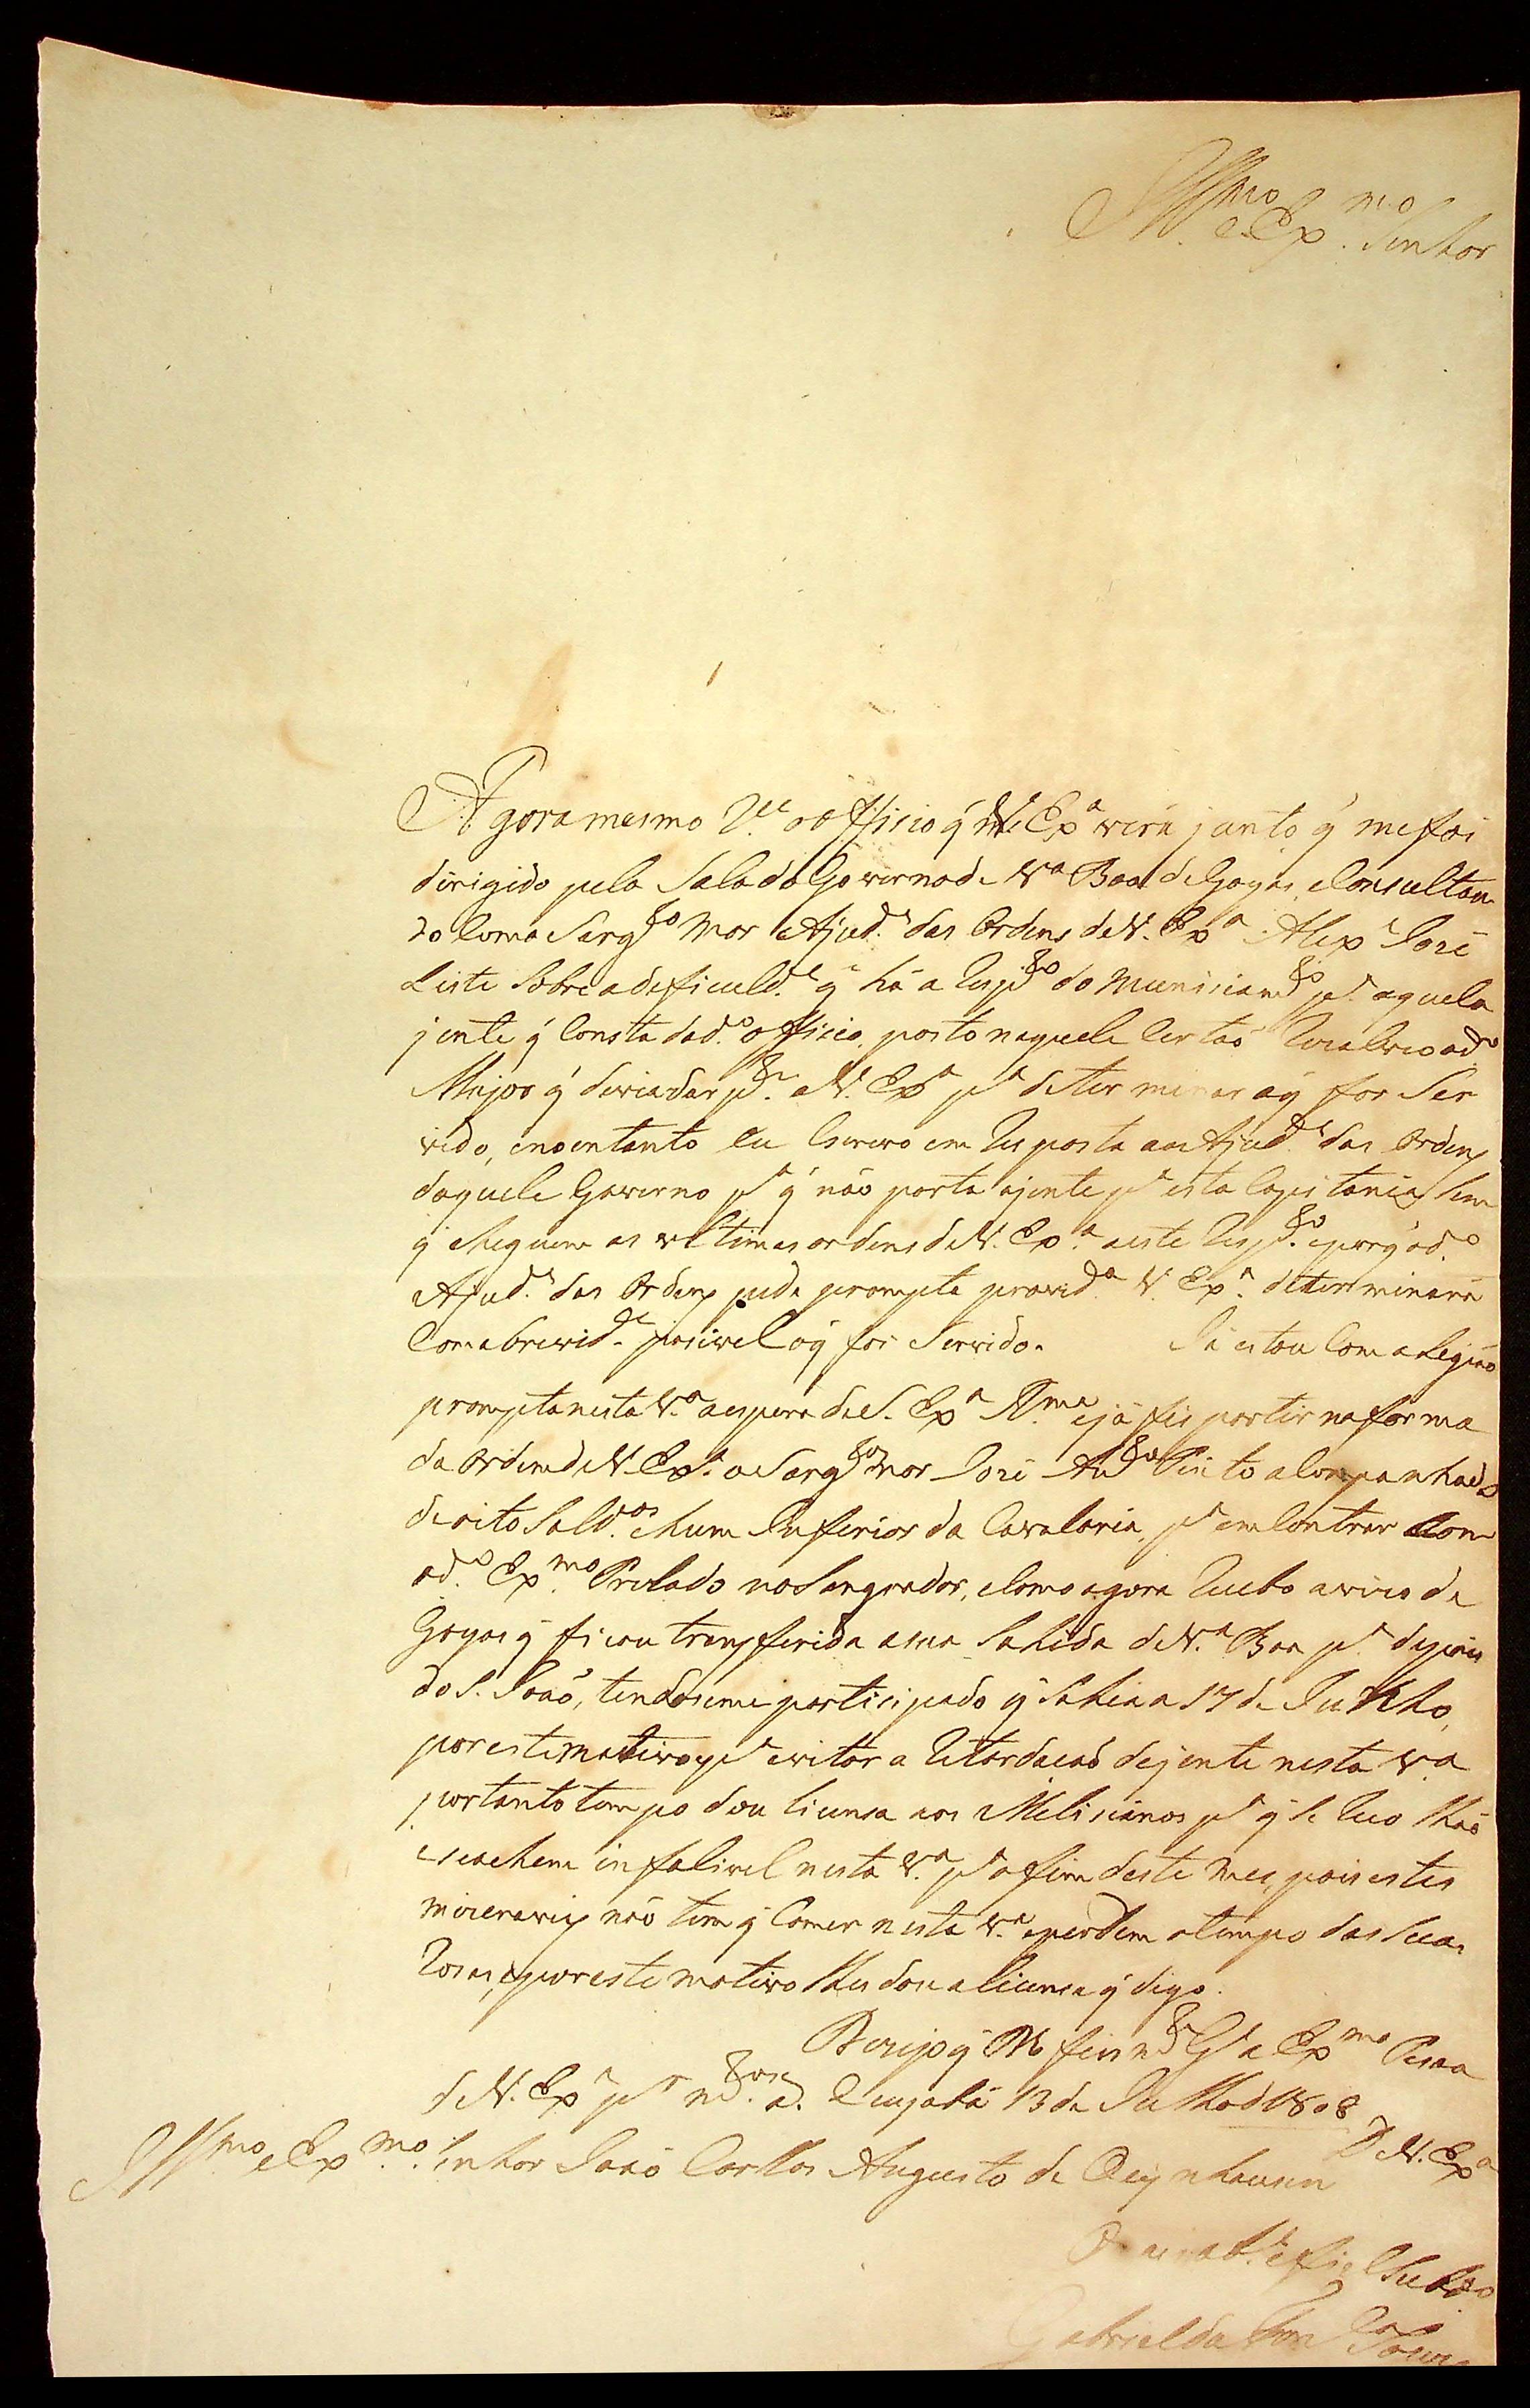 Ill.mo e Ex.mo Senhor
Agora mesmo R.ce o officio q̃ V. Ex.a verá junto q̃ me foi
dirigido pela Sala do Governo de V.a Boa de Goyas, e Consultan
do Com o Sarg.to Mor Ajud.e das Ordens de V. Ex.a Alex.e José
Leite Sobre a deficuld.e q̃ há a resp.to do Municiam.to p.a aquela
jente q̃ Consta do d.o officio, posto naquele Certaõ o d.o
Major q̃ devia dar p.te a V. Ex.a p.a determinar o q̃ for Ser
vido, e no entanto eu Escrevo em Resposta ao Ajud.e das Ordens
daquele Governo p.a q̃ não parta a jente p.a esta Capitania, Sem
q̃ cheguem as ultimas ordens de V. Ex.a a este resp.to e porq̃ o d.o
Ajud.e das Ordens pede prompta provid.a V. Ex.a determinará
Com a brevid.e posivel o q̃ for Servido. Já estou Com a Legiaõ
prompta nesta V.a a espera de S. Ex.a R.ma e já fis partir na forma
da Ordem de V. Ex.a o Sarg.to Mor José Ant.o Pinto acompanhado
de oito Sold.os e hum Inferior da Cavalaria, p.a encontrar Com
o d.o Ex.mo Prelado no Sangrador, e Como agora Recebo aviso de
Goyas q̃ ficou transferida a sua Sahida de V.a Boa p.a depois
do S. João, tendoseme participado q̃ Sahia a 17 de Julho,
por este motivo, e p.a evitar a Retardacaõ de jente nesta V.a
por tanto tempo dou licensa aos Milicianos p.a q̃ Se Recolhaõ
e se achem infalivel nesta V.a p.a o fim deste Mes, pois estes
miseraveis não tem q̃ Comer nesta V.a e perdem o tempo das Suas
Rosas, e por este motivo lhes dou a licensa q̃ digo.
Dezejo q̃ D.s felismt.e G.de a Ex.ma Pesoa
de V. Ex.a p.r m.tos a. Cuyabá 13 de Julho de 1808
De V. Ex.a
Ill.mo e Ex.mo Senhor Joaõ Carllos Augusto de Oeynhausen
e fiel Subdito
Gabriel da Fon.ca Souza